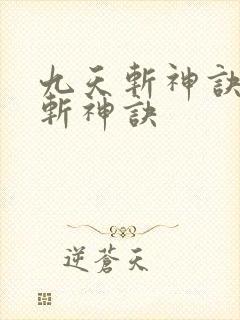 九天斬神訣
斬神訣
逆蒼天